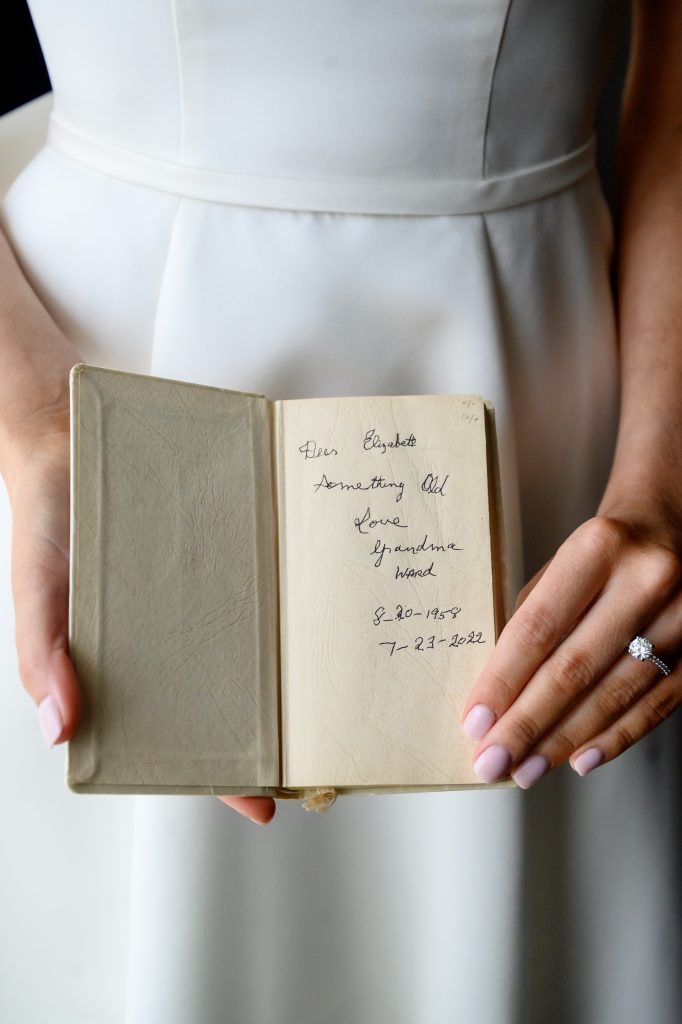 Dear Elizabeth
Something Old
Love
Grandma
WARD
8-20-1958
7-23-2022